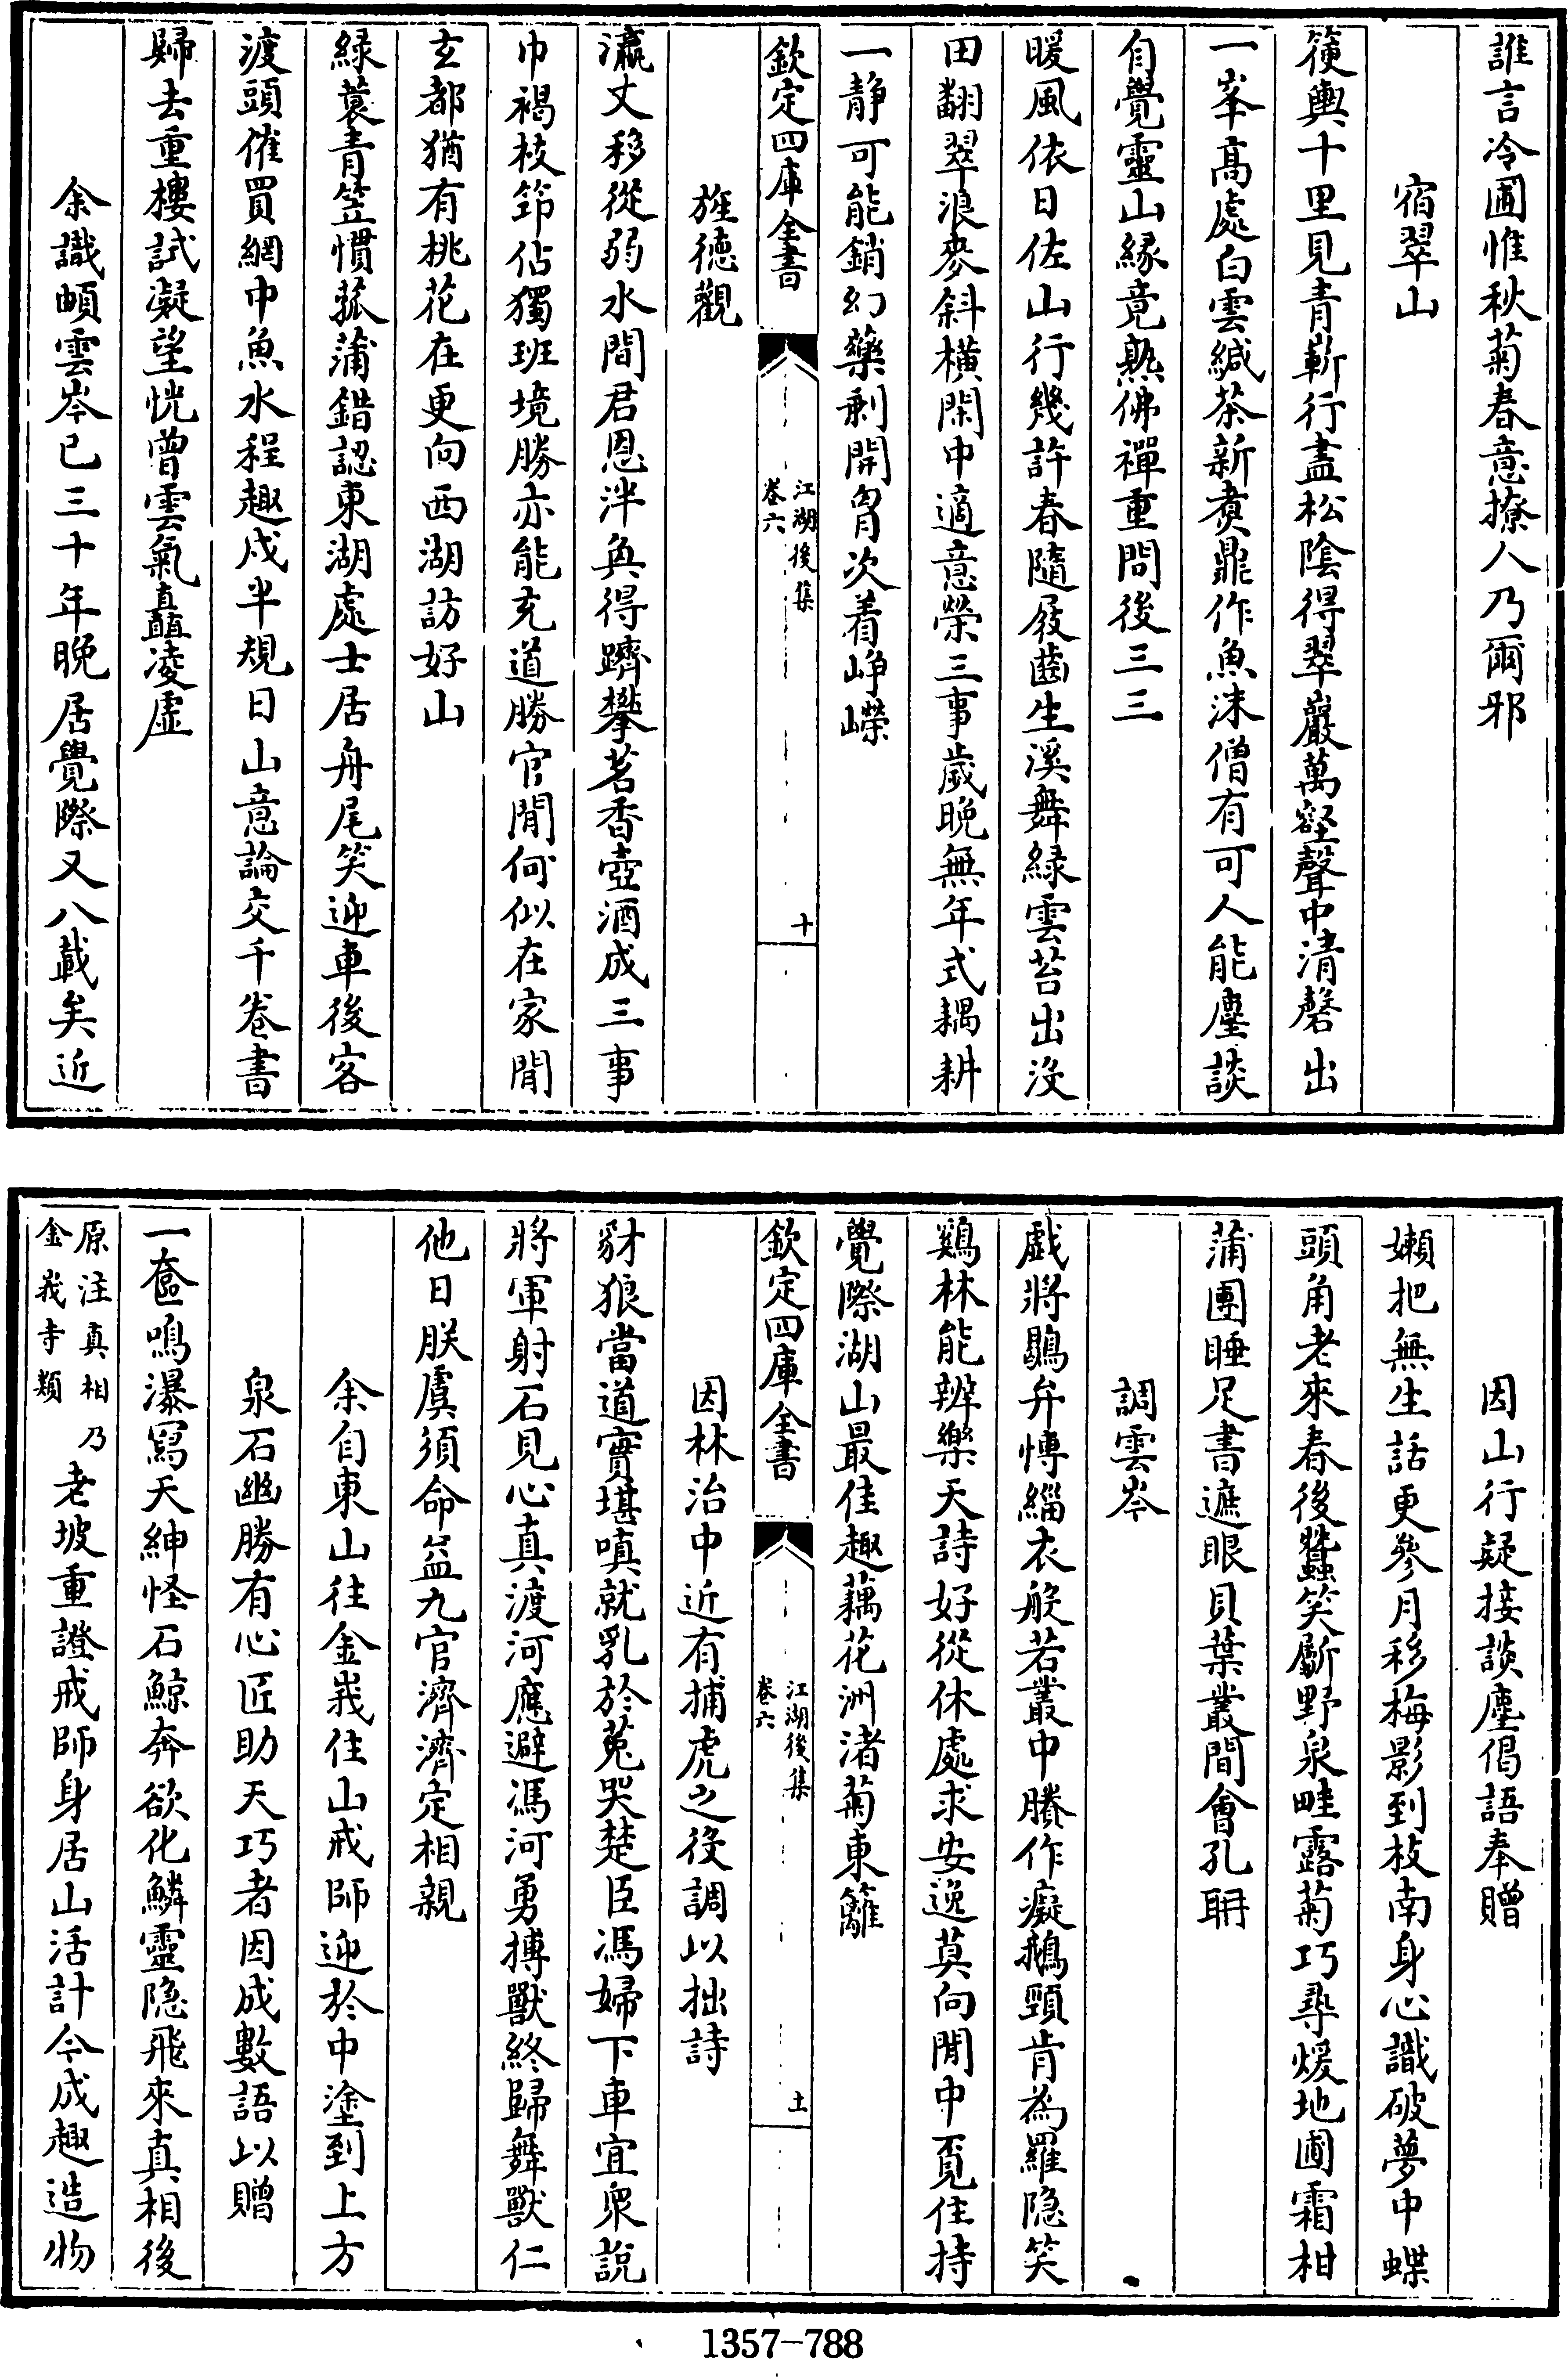 誰言冷圃惟秋菊春意撩人乃爾邪
宿翠山
箯輿十里見青嶄行盡松陰得翠巖萬壑聲中清磬出
一峯高處白雲緘茶新煑鼎作魚沫僧有可人能麈談
自覺靈山緣竟熟佛禪重問後三三
暖風依日佐山行幾許春隨屐齒生溪舞緑雲苔出没
田翻翠浪麥斜橫閑中適意榮三事歲晚無年式耦耕
一靜可能銷幻藥剩開胷次着崢嶸
欽定四庫全書
江湖後集
卷六
十
旌德觀
瀛丈移從弱水間君恩泮奐得躋攀茗香壺酒成三事
巾褐枝筇佔獨班境勝亦能充道勝官閒何似在家閒
玄都猶有桃花在更向西湖訪好山
緑蓑青笠慣菰蒲錯認東湖處士居舟尾笑迎車後客
渡頭催買網中魚水程趣戍半規日山意論交千卷書
歸去重樓試凝望恍曾雲氣矗凌虛
余識頔雲岑已三十年晚居覺際又八載矣近
因山行疑接談麈偈語奉贈
嬾把無生話更參月移梅影到枝南身心識破夢中蝶
頭角老來春後蠶笑斸野泉畦露菊巧尋煖地圃霜柑
蒲團睡足書遮眼貝葉叢間會孔聃
調雲岑
戯將鶡弁博緇衣般若叢中賸作癡鵝頸肯為羅隐笑
鷄林能辨樂天詩好從休處求安逸莫向閒中覓住持
覺際湖山最佳趣藕花洲渚菊東籬
欽定四庫全書
江湖後集
卷六
十一
因林治中近有捕虎之役調以拙詩
豺狼當道實堪嗔就乳於菟哭楚臣馮婦下車宜衆說
將軍射石見心真渡河應避馮河勇搏獸終歸舞獸仁
他日朕虞須命益九官濟濟定相親
余自東山往金峩住山戒師迎於中塗到上方
泉石幽勝有心匠助天巧者因成數語以贈
一奩鳴瀑寫天紳怪石鯨奔欲化鱗靈隐飛來真相後
原注真相乃
金峩寺類
老坡重證戒師身居山活計今成趣造物
1357-788